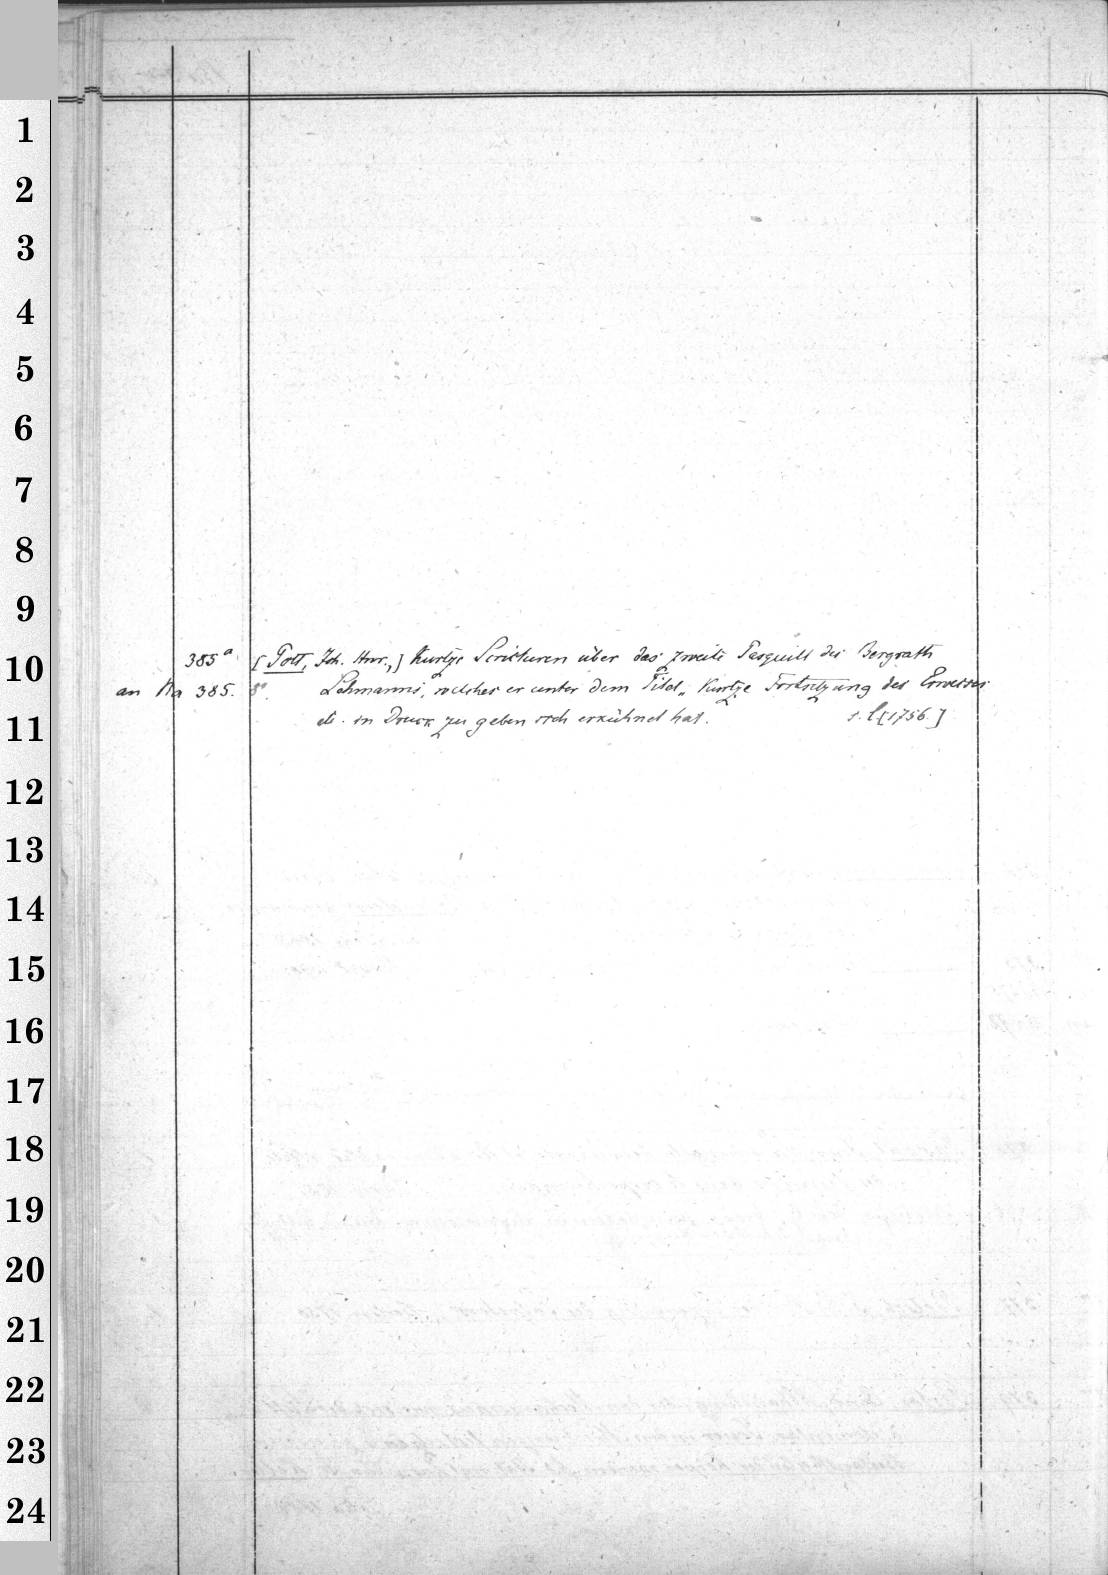 1
2
3
4
5
6
7
8
9
10
11
12
13
14
15
16
17
18
19
20
21
22
23
24
385a [Pott, Joh. Henr.,] Kurtze Stricturen über das zweite Pasquill des Bergrath
an Na 385. 8° Lehmanns, welches er unter dem Titel „Kurtze Fortsetzung des Erweises
etc. in Druck zu geben sich erkühnet hat. s. l. [1756.]